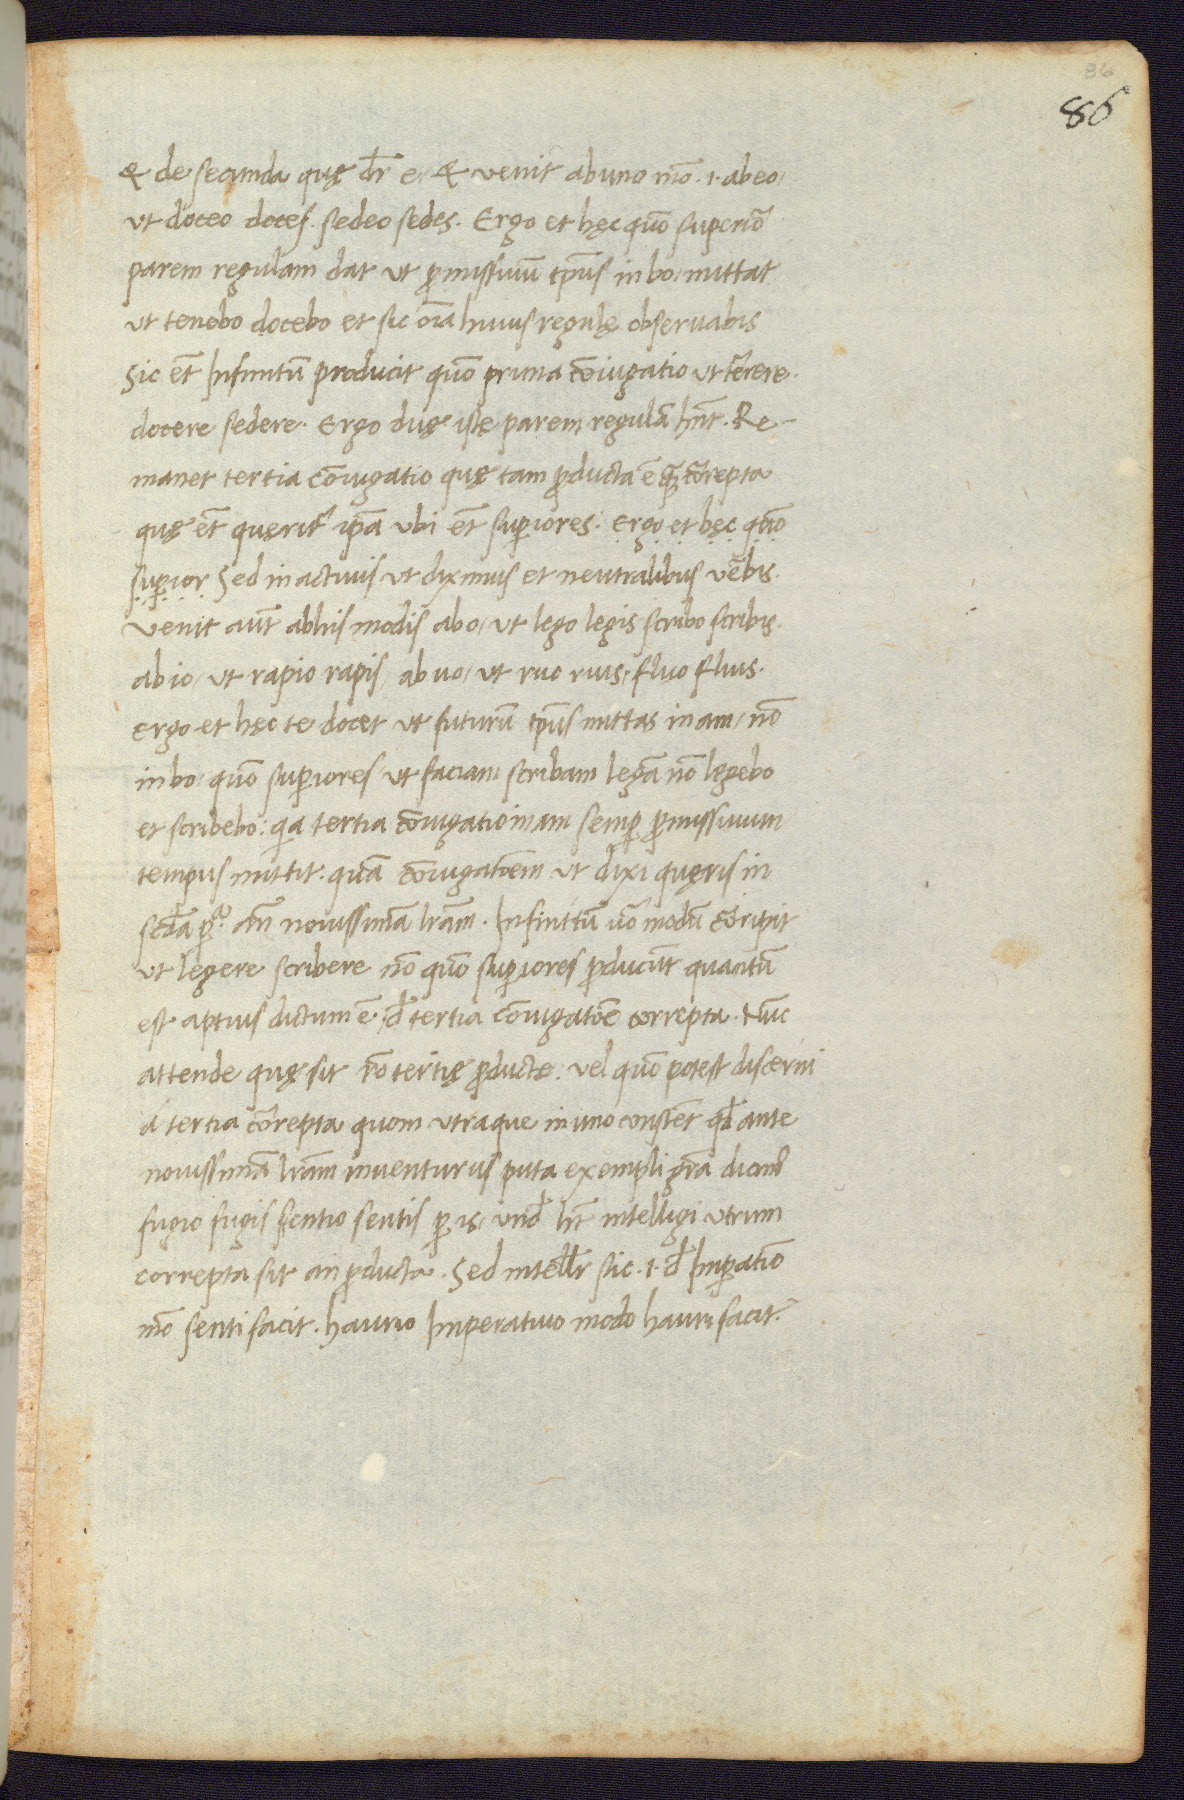 86
86
& de secunda quę dr̄ e. & venit ab uno mō .i. ab eo,
ut doceo doces. sedeo sedes. Ergo et hęc quō superiō
parem regulam dat ut ꝓmissiuū tp̄us in bo, mittat
ut tenebo docebo et sic oīa huius regulę obseruabis
Sic et̄ Infinitū producit quō prima cōiugatio ut terere.
docere sedere. Ergo duę istę parem regulā hn̄t. Re-
manet tertia cōiugatio quę tam ꝓducta ē q̄ cōrepta
quę et̄ querit᷑ ip̄a ubi et̄ supiores. Ergo et hęc qōō
supior Sed in actiuis ut diximus et neutralibus v̄bis.
Venit aūt ab his modis ab o, ut lego legis scribo scribis.
ab io, ut rapio rapis, ab uo, ut ruo ruis, fluo fluis.
Ergo et hęc te docet ut futurū tp̄us mittas in am, nō
in bo, quō supiores ut faciam scribam legā nō legebo
et scribebo: qa tertia cōiugatio in am semp ꝓmissiuum
tempus mittit. quā cōiugatōem ut dixi quęris in
scdā p̱. an̄ nouissimā lrām. Infinitū uō modū cōripit
ut legere scribere nō quō supiores ꝓducūt quacitū
est aptius dictum ē. d̄ tertia cōiugatōe correpta. Nūc
attende quę sit rō tertię ꝓductę. vel quō potest discerni
a tertia cōrepta quom utraque in uno constet qd̄ ante
nouissimā lrām inuenturus puta exempli grā dicim᷑
fugio fugis sentio sentis ꝑ is, und̄ ht̄ intelligi utrum
correpta sit an ꝓducta. Sed intell̄r sic .i. d̄ Imperatiō
mō senti facit. haurio Imperatiuo modo hauri facit.